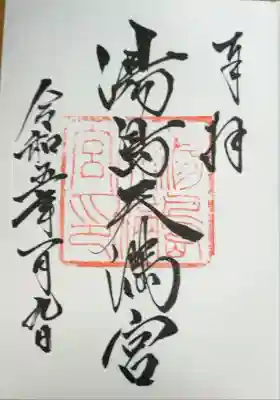 奉拝
湯島天満宮
令和五年一月九日